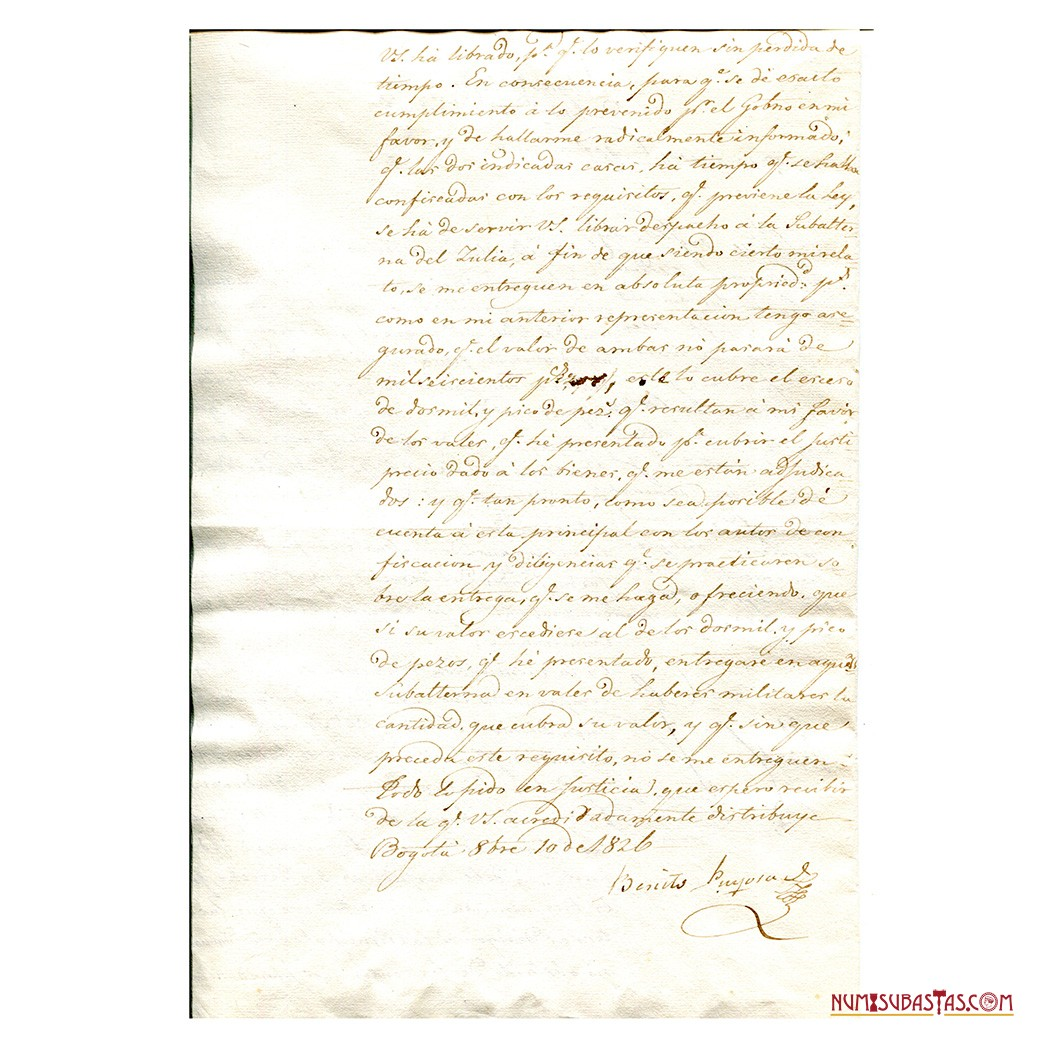 VS. há librado, pª. qᵉ. lo verifiquen sin perdida de
tiempo. En consecuencia, para qᵉ. se dé esacto
cumplimiento á lo prevenido pʳ. el Gobno en mi
favor, y de hallarme radicalmente informado,
qᵉ. las dos indicadas casas, há tiempo qᵉ. se hallan
confiscadas con los requisitos, qᵉ. previene la Ley,
se há de servir VS. librar despacho á la Subalter-
na del Zulia, á fin de que siendo cierto mi rela-
to, se me entreguen en absoluta propriedᵈ. pˢ.
como en mi anterior representacion tengo ase-
gurado, qᵉ. el valor de ambas nó pasará de
mil seiscientos este lo cubre el esceso
de dosmil, y pico de pezˢ. qᵉ. resultan á mi favor
de los vales, qᵉ. hé presentado pª. cubrir el justi
precio dado á los bienes, qᵉ. me están adjudica
dos: y qᵉ. tan pronto, como sea posible dé
cuenta á esta principal con los autos de con
fiscacion, y diligencias qᵉ. se practicaren só
bre la entrega, qᵉ. se me haga, ofreciendo, que
si su valor escediese al de los dosmil, y pico
de pezos, qᵉ. hé presentado, entregaré en aquˡˡᵃ
Subalterna en vales de haberes militares la
cantidad, que cubra su valor, y qᵉ. sin que
preceda este requisito, nó se me entreguen-
Todo lo pido en Justicia, que espero recibir
de la qᵉ. VS. acreditadamente distribuye
Bogotá 8bre 10 de 1826
Benito
NUMISUBASTAS.COM